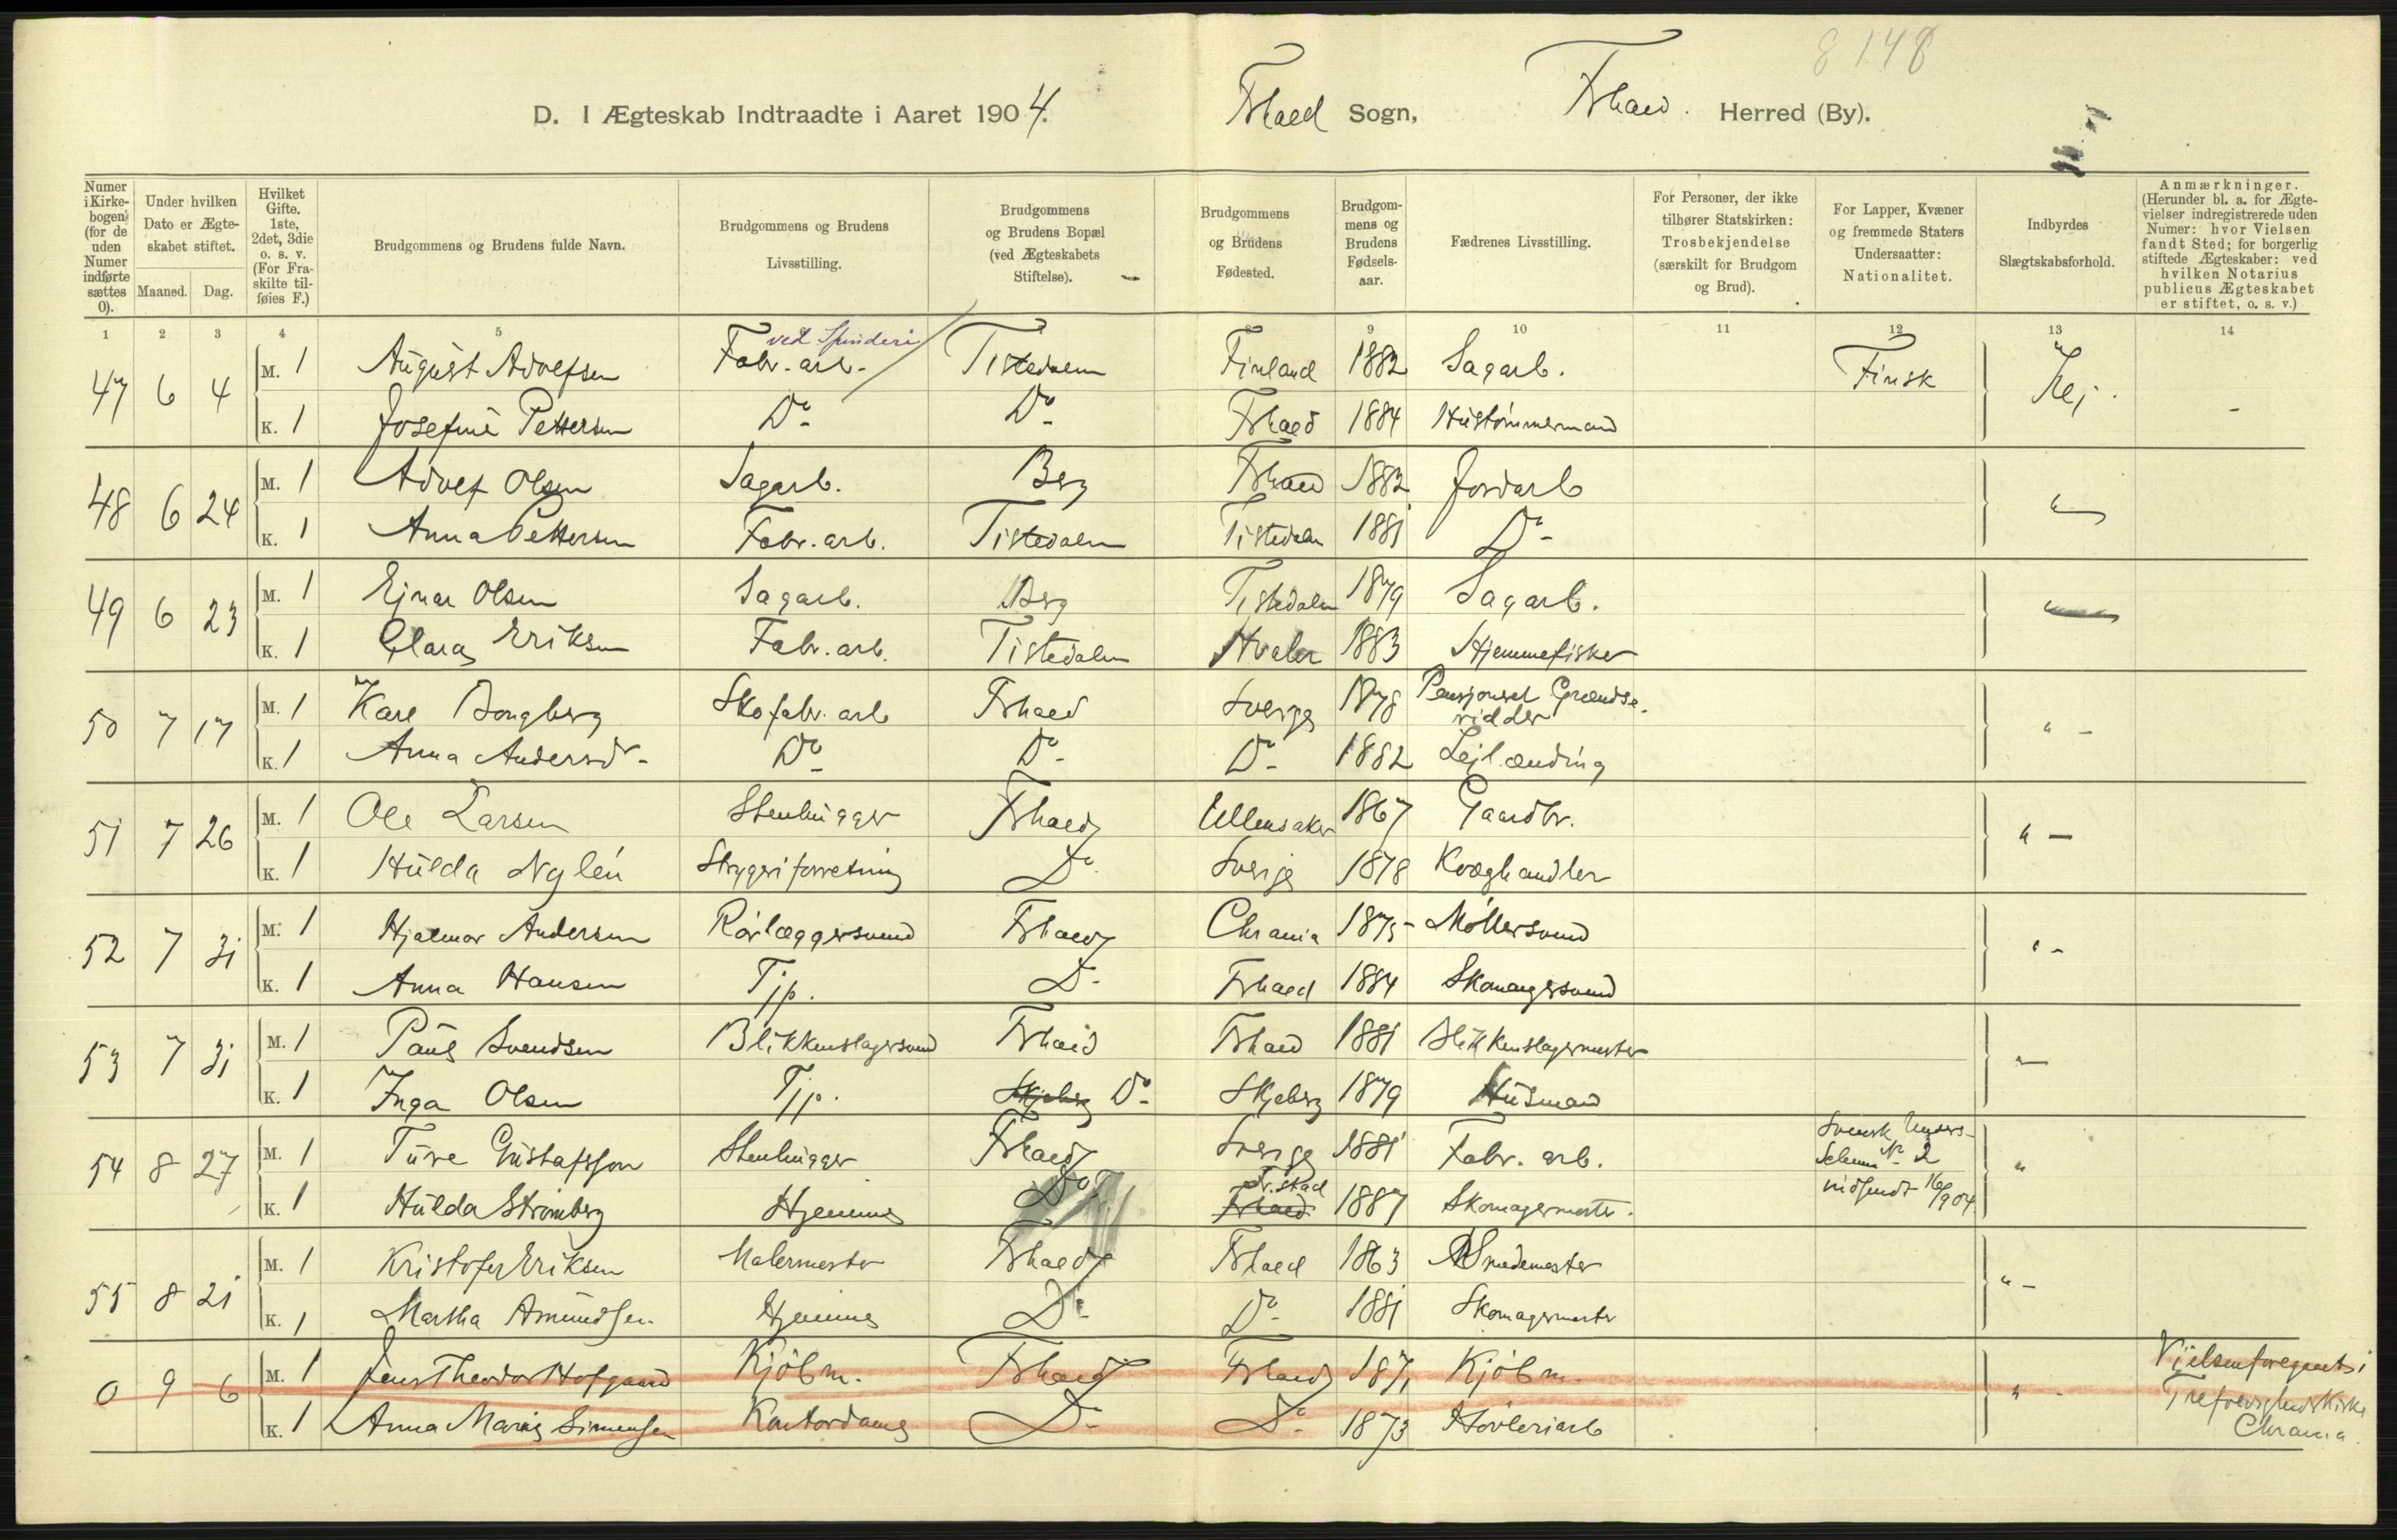 8148
D. I Ægteskab Indtraadte i Aaret 1904. Fhald Sogn, Fhald. Herred (By).
Numer i Kirkebogen (for de uden Numer indførte sættes 0). Under hvilken Dato er Ægteskabet stiftet. Maaned. Dag. Hvilket Gifte. 1ste, 2det, 3die o. s. v. (For Fraskilte tilføies F.) Brudgommens og Brudens fulde Navn. Brudgommens og Brudens Livsstilling. Brudgommens og Brudens Bopæl (ved Ægteskabets Stiftelse). Brudgommens og Brudens Fødested. Brudgommens og Brudens Fødselsaar. Fædrenes Livsstilling. For Personer, der ikke tilhører Statskirken: Trosbekjendelse (særskilt for Brudgom og Brud). For Lapper, Kvæner og fremmede Staters Undersaatter: Nationalitet. Indbyrdes Slægtskabsforhold. Anmærkninger. (Herunder bl. a. for Ægtevielser indregistrerede uden Numer: hvor Vielsen fandt Sted; for borgerlig stiftede Ægteskaber: ved hvilken Notarius publicus Ægteskabet er stiftet, o. s. v.)
1 2 3 4 5 8 9 10 11 12 13 14
47 6 4 M. 1 August Adolfsen Fabr. arb. ved Spinderi Tistedalen Finland 1882 Sagarb. Finsk Nej.
K. 1 Josefine Pettersen Do - Do - Fhald 1884 Hustømmermand -
48 6 24 M. 1 Adolf Olsen Sagarb. Berg Fhald 1882 Jordarb "
K. 1 Anna Pettersen Fabr. arb. Tistedalen Tistedalen 1881 Do -
49 6 23 M. 1 Ejnar Olsen Sagarb. Berg Tistedalen 1879 Sagarb. "
K. 1 Clara Eriksen Fabr. arb. Tistedalen Hvaler 1883 Hjemmefisker
50 7 17 M. 1 Karl Bongberg Skofabr. arb Fhald Sverige 1878 Pensjoneret Grændseridder " -
K. 1 Anna Andersd - Do - Do - Do - 1882 Lejlænding
51 7 26 M. 1 Ole Larsen Stenhugger Fhald Ullensaker 1867 Gaardbr. " -
K. 1 Hulda Nylén Strygeriforretning Do Sverige 1878 Kvæghandler
52 7 31 M. 1 Hjalmar Andersen Rørlæggersvend Fhald Chrania 1875 - Møllersvend " -
K. 1 Anna Hansen Tjp. Do - Fhald 1884 Skomagersvend
53 7 31 M. 1 Paul Svendsen Blikkenslagersvend Fhald Fhald 1881 Blikkenslagermester " -
K. 1 Inga Olsen Tjp. Skjeberg Do - Skjeberg 1879 Husmand
54 8 27 M. 1 Ture Gustafsson Stenhugger Fhald Sverige 1881 Fabr. arb. Svensk Unders- Schema No 2 indsendt 16/9 04 "
K. 1 Hulda Strömberg Hjemme Do Fhald Fr.stad 1887 Skomagermester.
55 8 21 M. 1 Kristofer Eriksen Malermester Fhald Fhald 1863 Smedemester " -
K. 1 Martha Amundsen Hjemme Do - Do - 1881 Skomagermester
0 9 6 M. 1 Jens Theodor Hofgaard Kjøbm. Fhald Fhald 1871 Kjøbm. " - Vielsen foregaaet i
K. 1 Anna Marie Simensen Kontordame Do - Do - 1873 Høvleriarb Trefoldighedskirke
Chrania